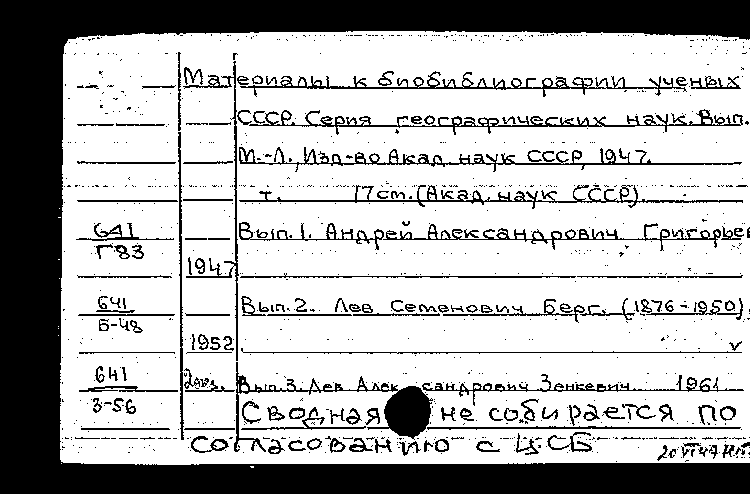 Материалы к биобиблиографии ученых
СССР. Серия географических наук. Вып.
М.-Л., Изд-во Акад. наук СССР, 1947.
т. 17 см. (Акад. наук СССР)
641 Вып. 1. Андрей Александрович Григорьев
Г83
1947
641 Вып. 2. Лев Семенович Берг. (1876-1950).
Б-48
1952 v
641 2экз. Вып. 3. Лев Александрович Зенкевич. 1961
З-56
Сводная не собирается по
согласованию с ЦСБ
20 VI 47